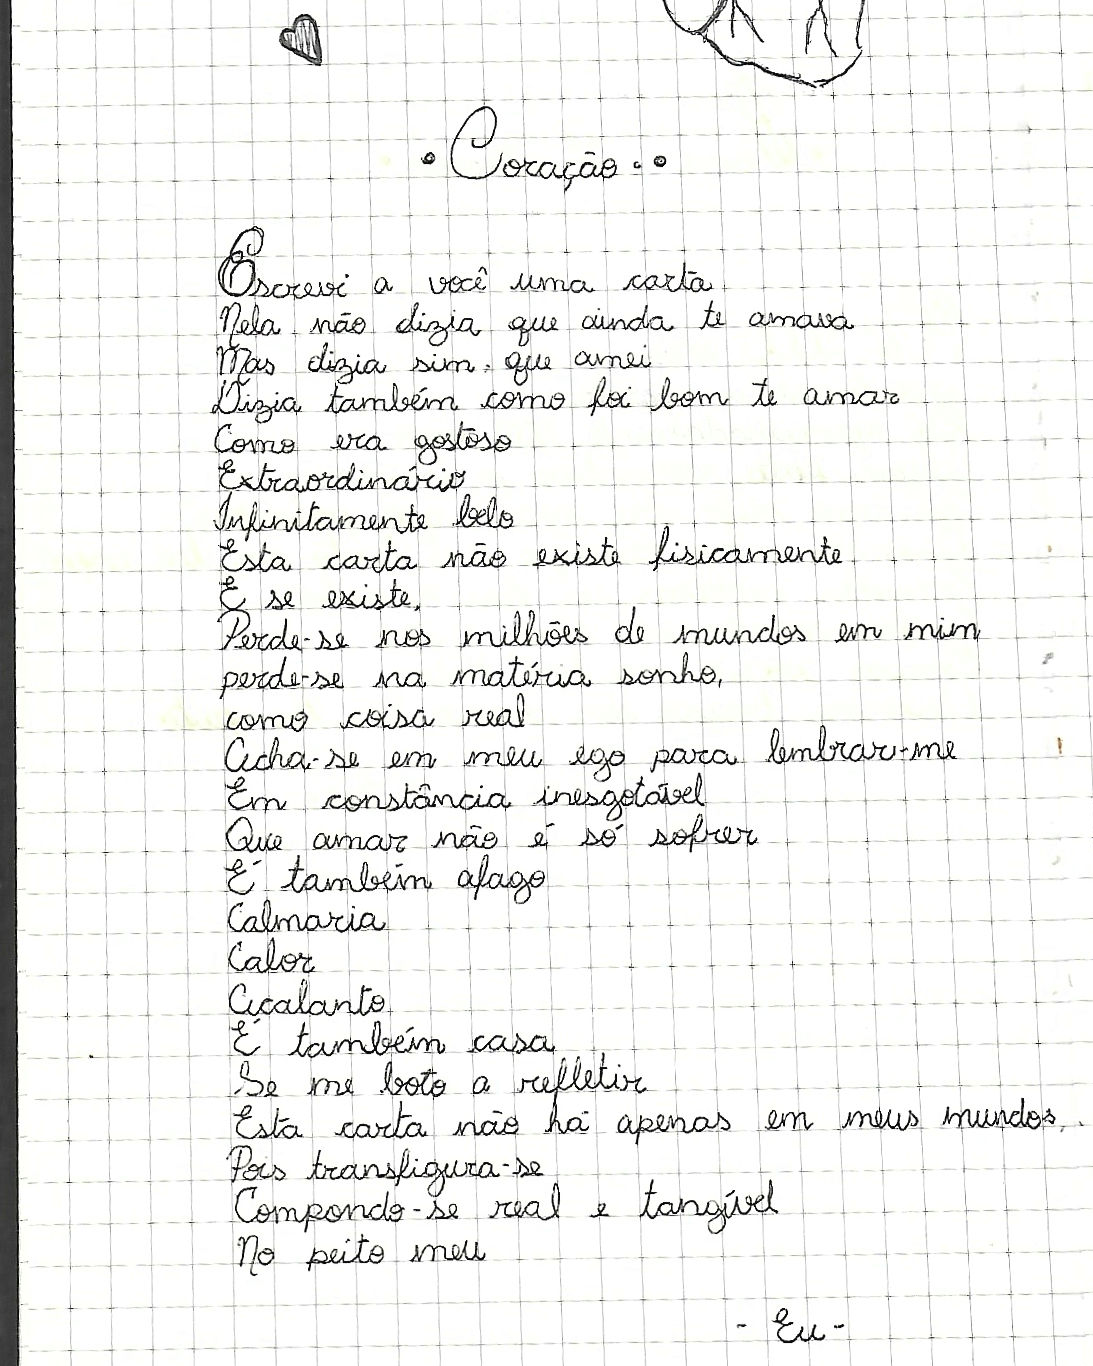 • Coração • •
Escrevi a você uma carta
Nela não dizia que ainda te amava
Mas dizia sim, que amei
Dizia também como foi bom te amar
Como era gostoso
Extraordinário
Infinitamente belo
Esta carta não existe fisicamente
E se existe,
Perde-se nos milhões de mundos em mim
perde-se na matéria sonho,
como coisa real
Acha-se em meu ego para lembrar-me
Em constância inesgotável
Que amar não é só sofrer
É também afago
Calmaria
Calor
Acalanto
É também casa
Se me boto a refletir
Esta carta não há apenas em meus mundos,
Pois transfigura-se
Compondo-se real e tangível
No peito meu
- Eu -